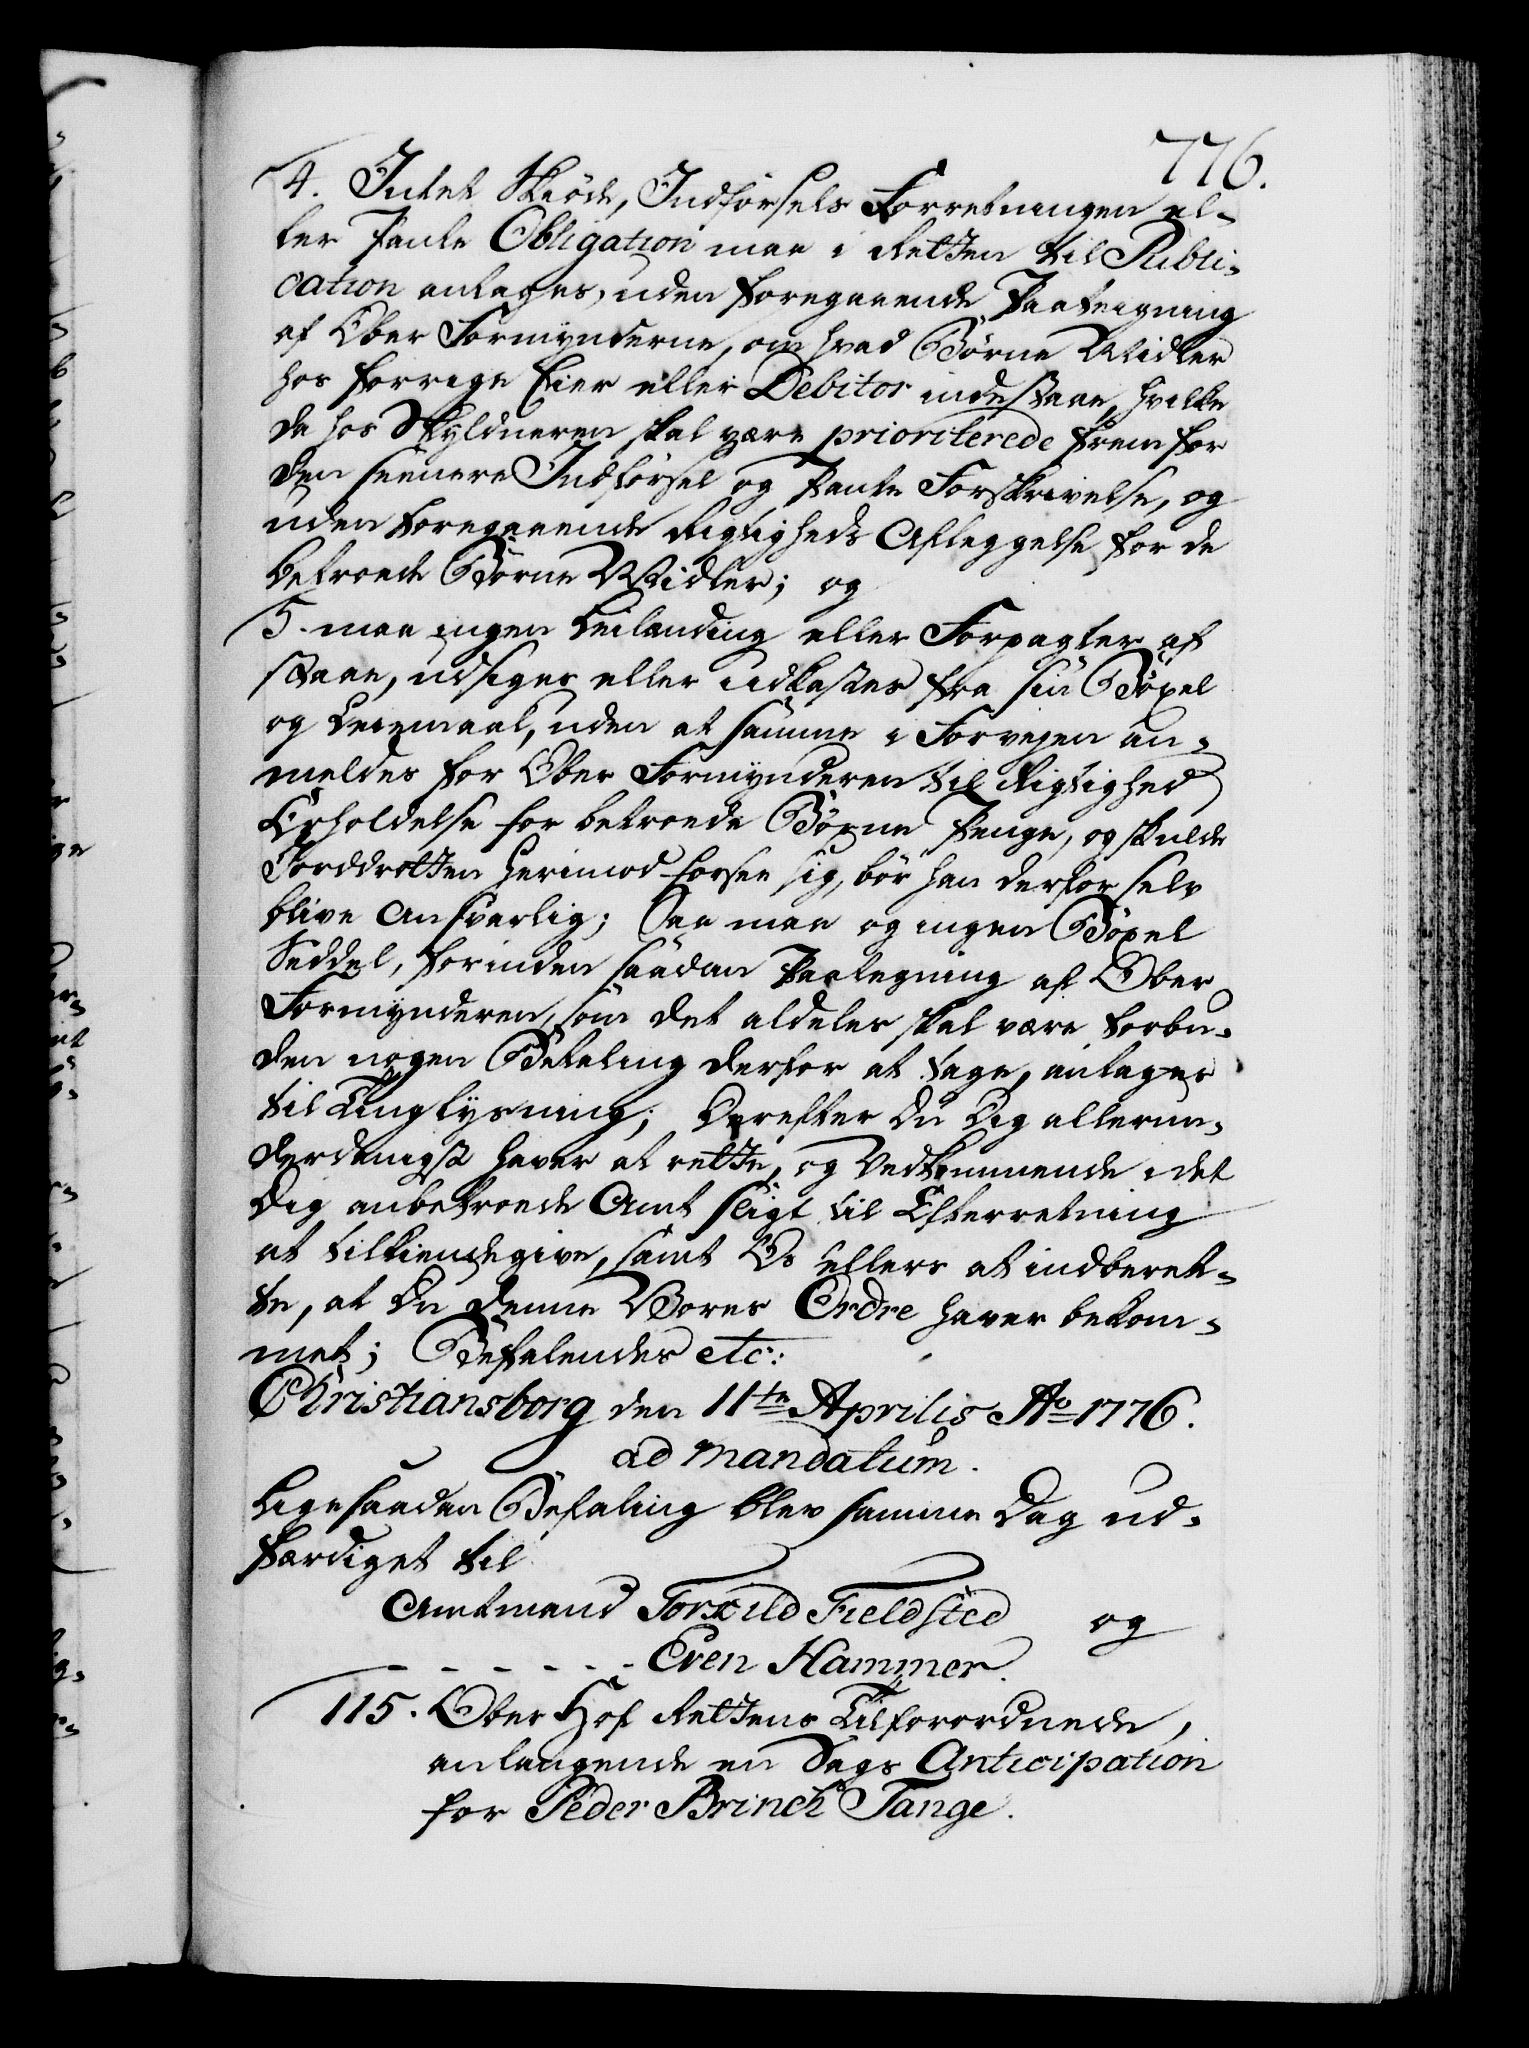 776.
4. Intet Skiöde, Indförsels Forretningen el-
ler Pante Obligation maa i Retten til Publi-
cation antages, uden foregaaende Paateigning
af Ober Formynderne, om hvad Börne Midler
hos forrige Eier eller Debitor indestaae, hvilke
da hos Skyldneren skal være prioriterede frem for
den seenere Indförsel og Pante Forskrivelse, og
uden foregaaende Rigtigheds Afleggelse for de
betroede Börne Midler; og
5. maa ingen Leilending eller Forpagter af
staae, udsiges eller udkastes fra sin Böxel
og Leiemaal, uden at samme i Forvejen an-
meldes for Ober Formynderen til Rigtighed
Erholdelse for betroede Börne Penge, og skulde
Jorddrotten herimod forsee sig, bör han derfor selv
blive Ansvarlig; Saa maa og ingen Böxel
Seddel, forinden saadan Paategning af Ober
Formynderen, som det aldeles skal være forbu-
den nogen Betaling derfor at tage, antages
til Tinglysning; Derefter Du Dig allerun-
derdanigst haver at rette, og Vedkommende i det
Dig anbetroede Amt sligt til Efterretning
at tilkiendegive, samt Os ellers at indberet-
te, at Du denne Vores Ordre haver bekom-
met; Befalendes etc:
Christiansborg den 11te Aprilis Ao 1776.
ad mandatum.
Ligesaadan Befaling blev samme Dag ud-
færdiget til
Amtmand Torkild Fieldsted og
- - - - - - Even Hammer.
115. Ober Hof Rettens Tilforordnede,
anlangende en Sags Anticipation
for Peder Brinch Tange.